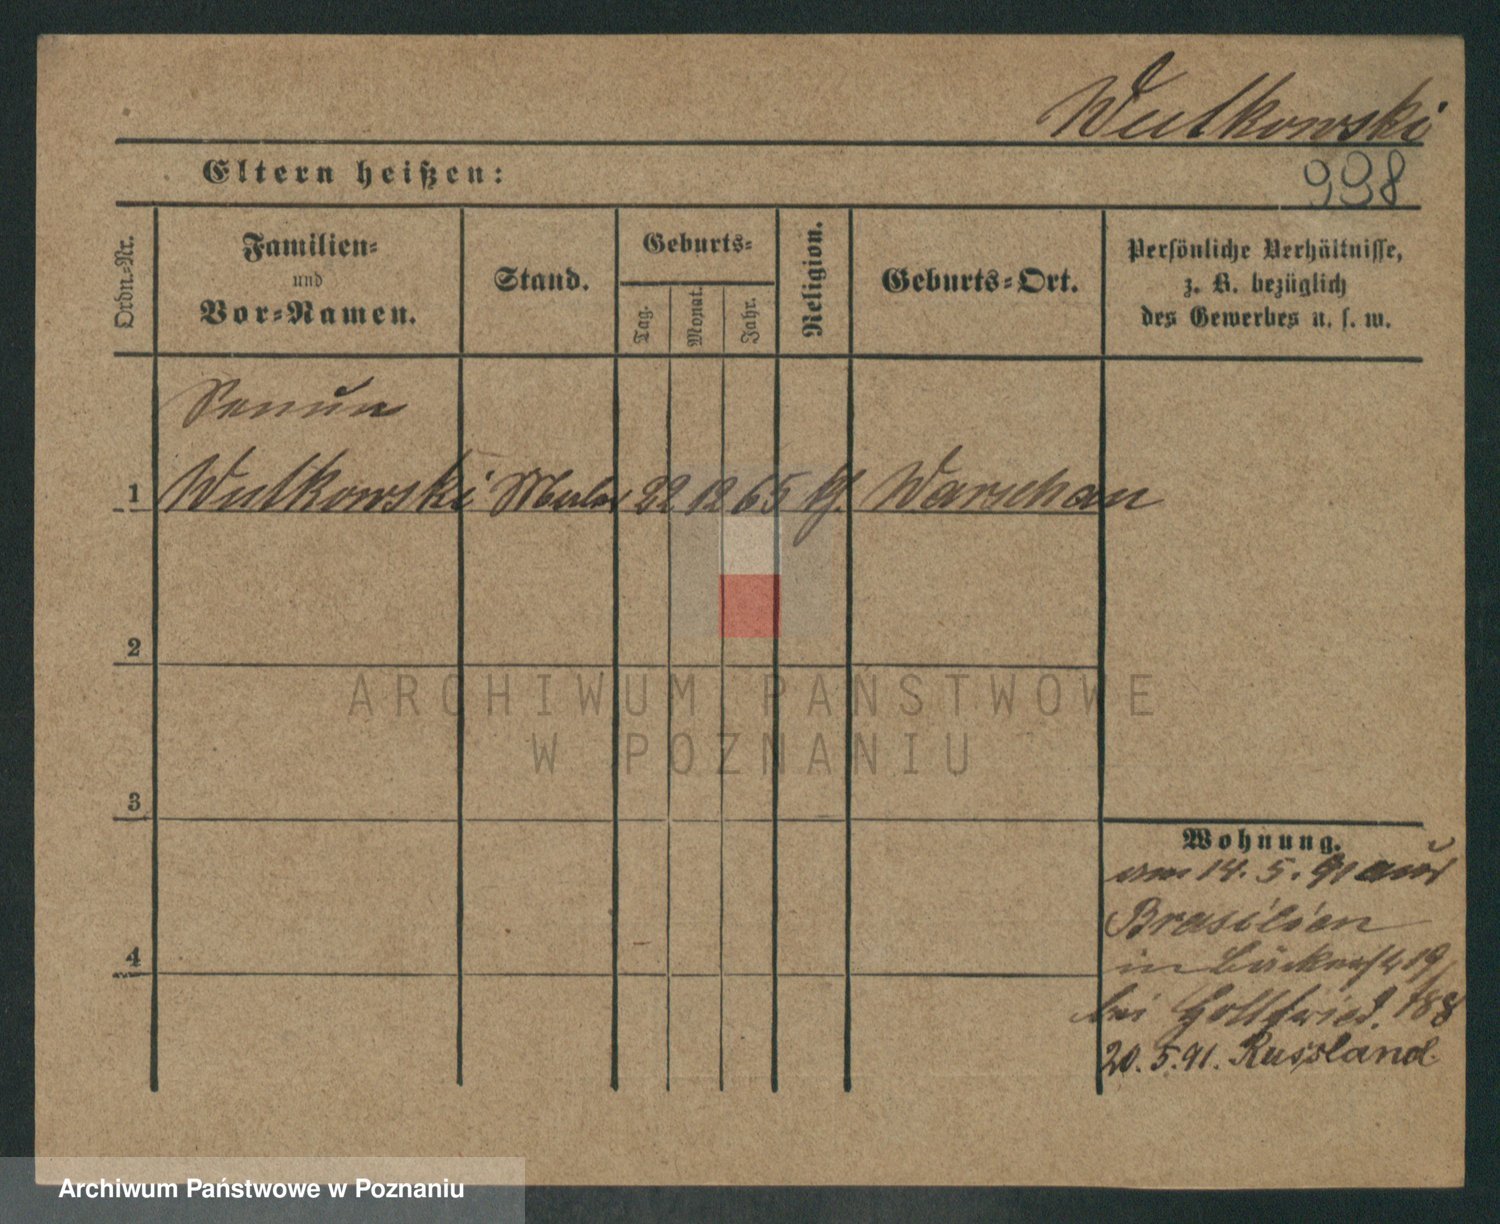 Wutkowski
Eltern heißen:
998
Ordn.=Nr.
Familien=
und
Vor=Namen.
Stand.
Geburts=
Tag.
Monat.
Jahr.
Religion.
Geburts=Ort.
Persönliche Verhältnisse,
z. B. bezüglich
des Gewerbes u. s. w.
1 Wutkowski 22 12 65 Warschau
2
ARCHIWUM PAŃSTWOWE
W POZNANIU
3
Wohnung.
am 14. 5. 91 aus
Brasilien
4
in 19/
bei Gottfried. 188
20. 5. 91. Russland
Archiwum Państwowe w Poznaniu